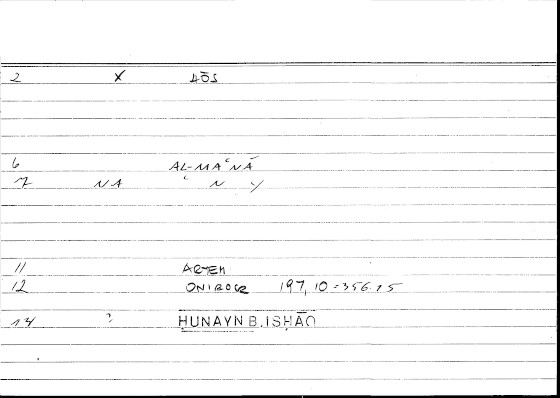 2 X 40S
6 AL-MAʿNĀ
7 NA ʿ N Y
11 ARTEM
12 ONIROCR 197, 10-356.25
14 ? ḤUNAYN B. ISḤĀQ